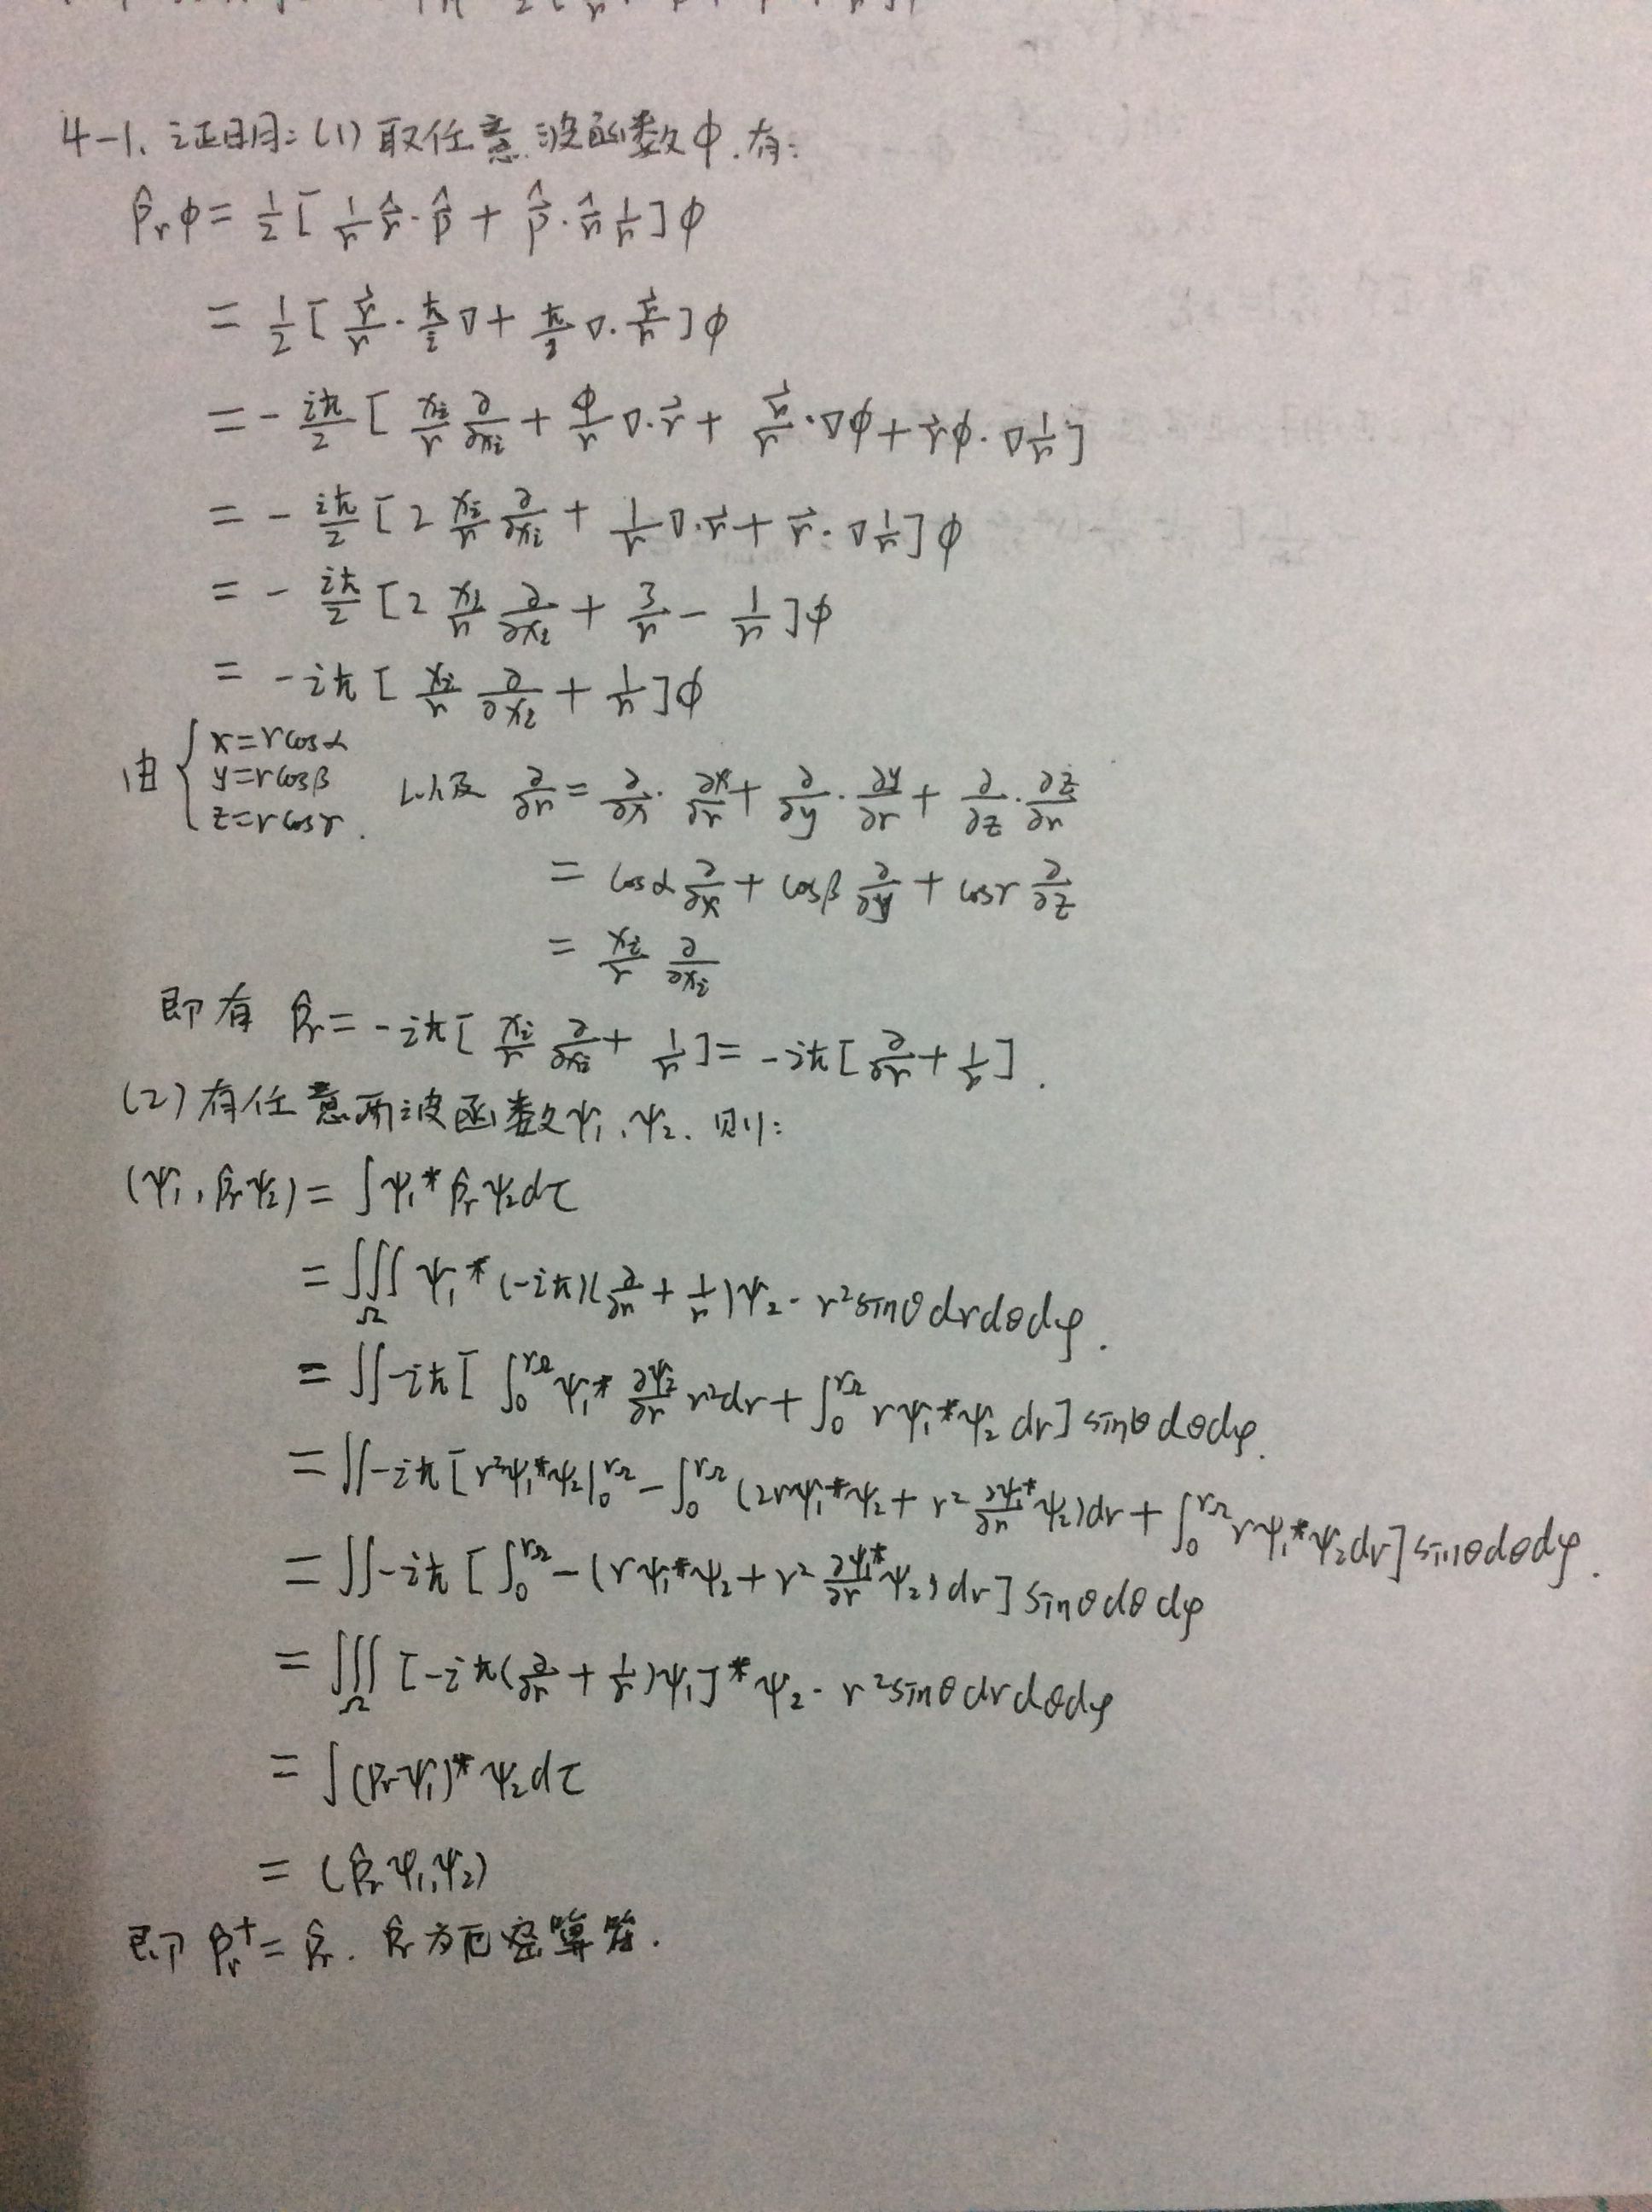 4-1. 证明: (1) 取任意波函数φ. 有:
p̂ᵣφ = ½[1/r r̂·p̂ + p̂·r̂ 1/r]φ
= ½[r⃗/r·ħ/i ∇ + ħ/i ∇·r⃗/r]φ
= -iħ/2[xᵢ/r ∂/∂xᵢ + φ/r ∇·r⃗ + r⃗/r·∇φ + r⃗φ·∇1/r]
= -iħ/2[2 xᵢ/r ∂/∂xᵢ + 1/r ∇·r⃗ + r⃗·∇1/r]φ
= -iħ/2[2 xᵢ/r ∂/∂xᵢ + 3/r - 1/r]φ
= -iħ[xᵢ/r ∂/∂xᵢ + 1/r]φ
由 { x=rcosα
y=rcosβ
z=rcosγ.
以及 ∂/∂r = ∂/∂x·∂x/∂r + ∂/∂y·∂y/∂r + ∂/∂z·∂z/∂r
= cosα ∂/∂x + cosβ ∂/∂y + cosγ ∂/∂z
= xᵢ/r ∂/∂xᵢ
即有 p̂ᵣ = -iħ[xᵢ/r ∂/∂xᵢ + 1/r] = -iħ[∂/∂r + 1/r].
(2) 有任意两波函数ψ₁、ψ₂. 则:
(ψ₁, p̂ᵣψ₂) = ∫ψ₁* p̂ᵣψ₂dτ
= ∭_Ω ψ₁*(-iħ)(∂/∂r + 1/r)ψ₂·r²sinθdrdθdφ.
= ∬-iħ[∫₀^{r_Ω} ψ₁* ∂ψ₂/∂r r²dr + ∫₀^{r_Ω} rψ₁*ψ₂dr]sinθdθdφ.
= ∬-iħ[r²ψ₁*ψ₂|₀^{r_Ω} - ∫₀^{r_Ω}(2rψ₁*ψ₂ + r² ∂ψ₁*/∂r ψ₂)dr + ∫₀^{r_Ω} rψ₁*ψ₂dr]sinθdθdφ.
= ∬-iħ[∫₀^{r_Ω} -(rψ₁*ψ₂ + r² ∂ψ₁*/∂r ψ₂)dr]sinθdθdφ
= ∭_Ω [-iħ(∂/∂r + 1/r)ψ₁]*ψ₂·r²sinθdrdθdφ
= ∫(pᵣψ₁)*ψ₂dτ
= (p̂ᵣψ₁,ψ₂)
即 p̂ᵣ⁺ = p̂ᵣ. p̂ᵣ为厄密算符.